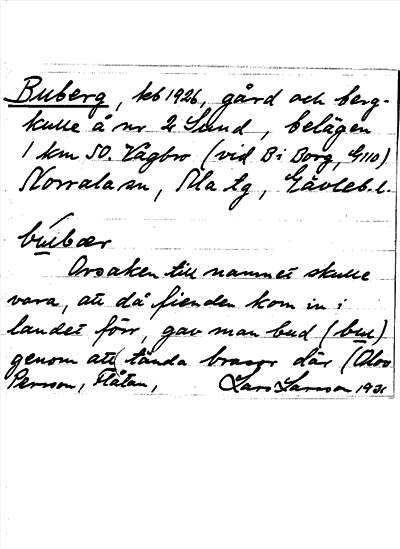 Buberg, kb 1926, gård och berg-
kulle å nr 2 Sund, belägen
1 km SO. Vågbro (vid B i Borg, G110)
Norrala sn, Ala tg, Gävleb. l.
bu̲bær
Orsaken till namnet skulle
vara, att då fienden kom in i
landet förr, gav man bud (bu)
genom att tända brasor där (Olov
Persson, Flåtan, Lars Larsson 1931